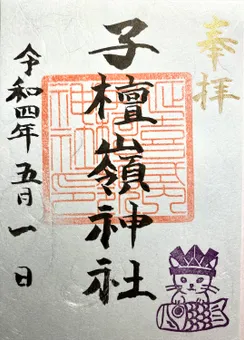 奉拝
子檀嶺神社
令和四年五月一日